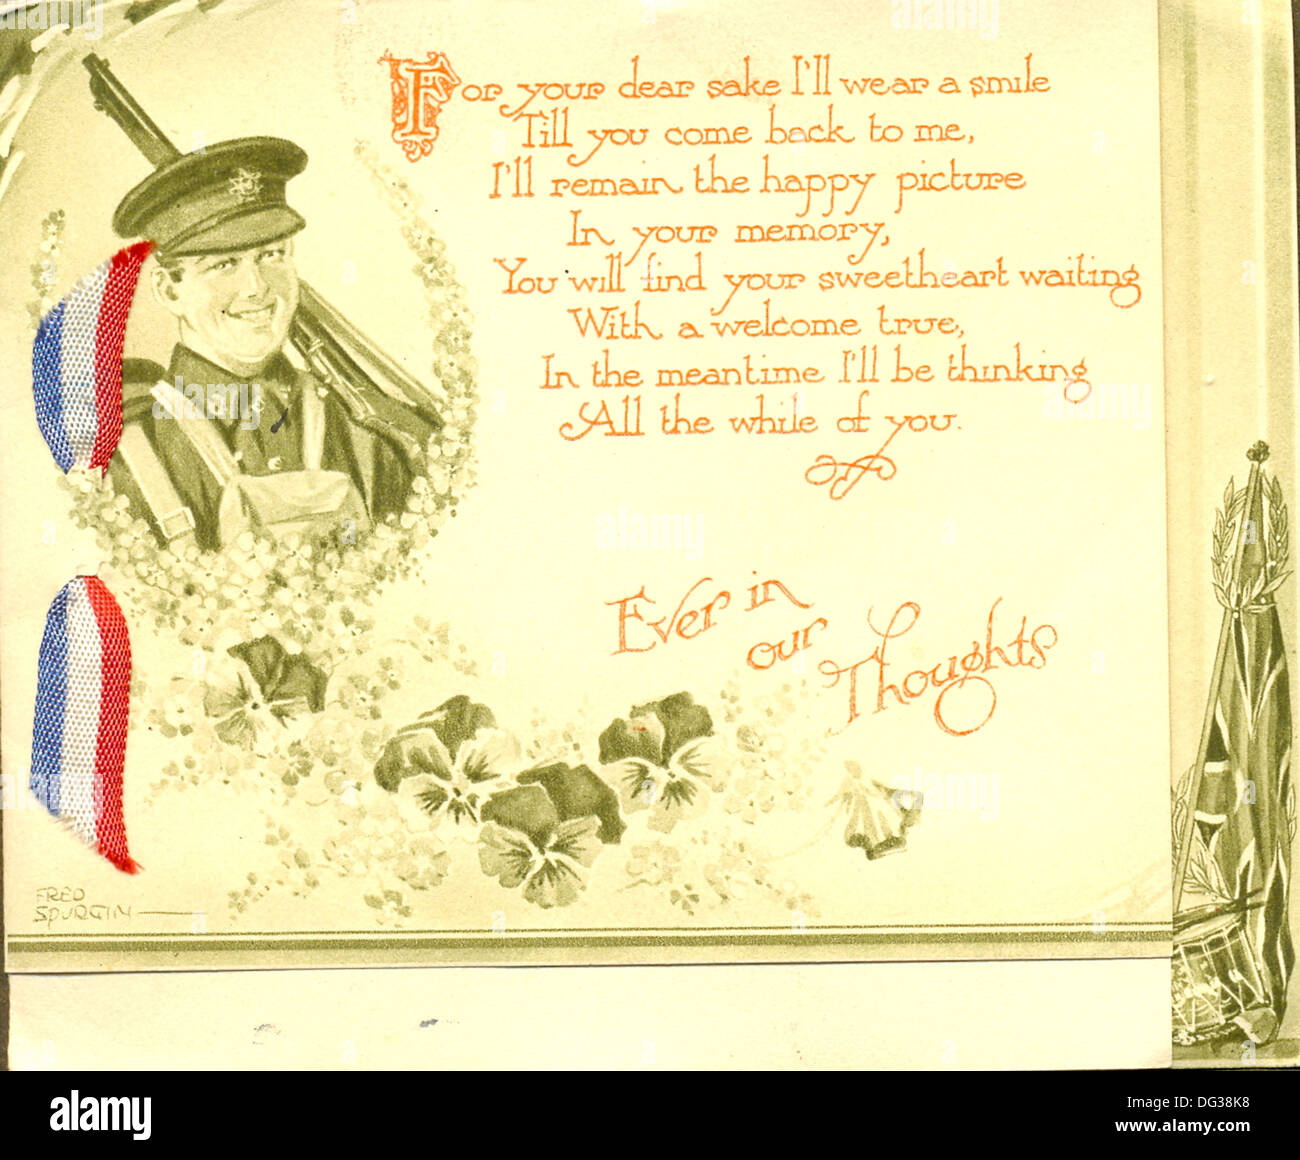 For your dear sake I'll wear a smile
Till you come back to me,
I'll remain the happy picture
In your memory,
You will find your sweetheart waiting
With a welcome true,
In the meantime I'll be thinking
All the while of you.
Ever in
our
Thoughts
FRED
SPURGIN
alamy
Image ID: DG38K8
www.alamy.com